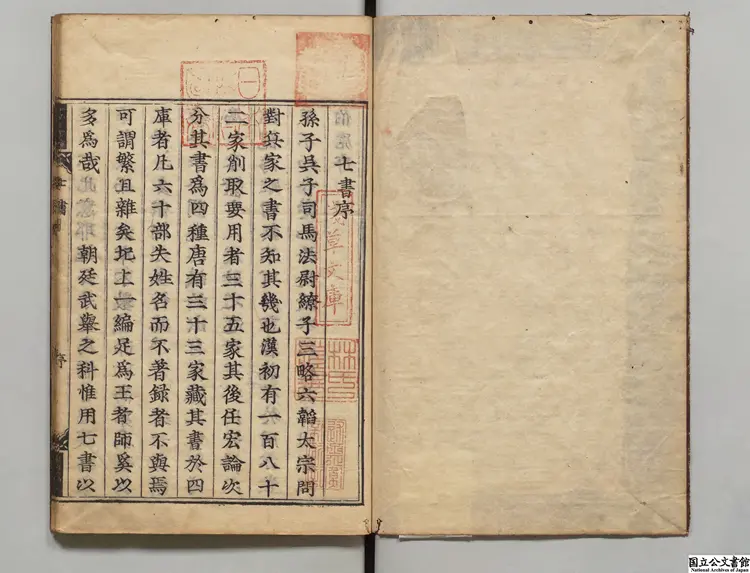 七書序
孫子吳子司馬法尉繚子三略六韜太宗問
對兵家之書不知其幾也漢初有一百八十
二家刪取要用者三十五家其後任宏論次
分其書爲四種唐有三十三家藏其書於四
庫者凡六十部失姓名而不著録者不與焉
可謂繁且雜矣圯上一編足爲王者師奚以
多爲哉 朝廷武舉之科惟用七書以
序
文庫
国立公文書館
National Archives of Japan